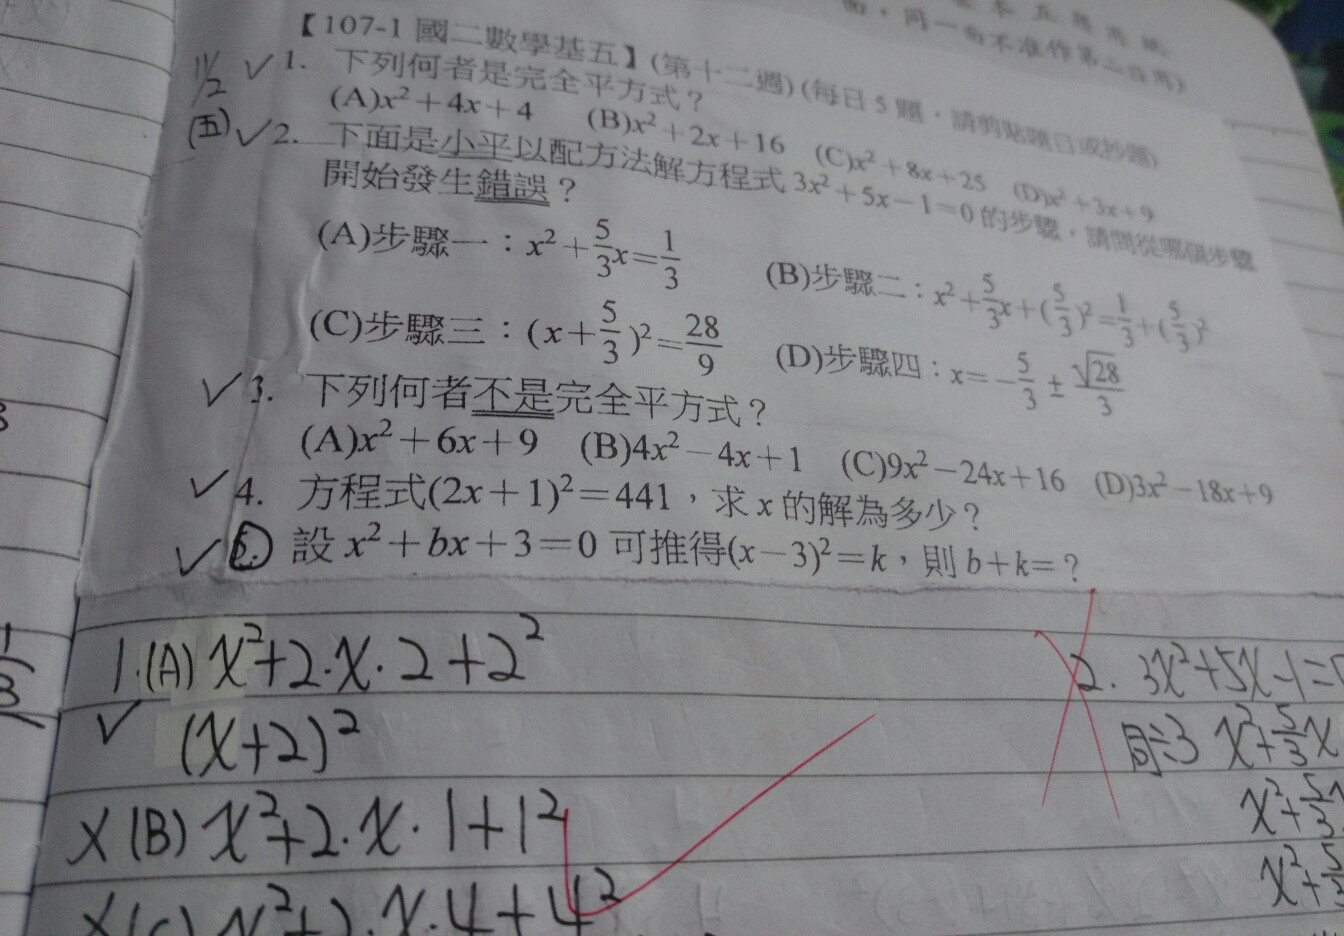 面，同一面不准作第二日用)
【107-1 國二數學基五】(第十二週) (每日 5 題，請剪貼題目或抄題)
11/2
(五)
✓ 1. 下列何者是完全平方式？
(A)x²+4x+4 (B)x²+2x+16 (C)x²+8x+25 (D)x²+3x+9
✓ 2. 下面是小平以配方法解方程式 3x²+5x−1=0 的步驟，請問從哪個步驟
開始發生錯誤？
(A)步驟一：x²+5/3x=1/3 (B)步驟二：x²+5/3x+(5/3)²=1/3+(5/3)²
(C)步驟三：(x+5/3)²=28/9 (D)步驟四：x=−5/3±√28/3
✓ 3. 下列何者不是完全平方式？
(A)x²+6x+9 (B)4x²−4x+1 (C)9x²−24x+16 (D)3x²−18x+9
✓ 4. 方程式(2x+1)²=441，求 x 的解為多少？
✓ 5. 設 x²+bx+3=0 可推得(x−3)²=k，則 b+k=？
1.(A) x²+2·x·2+2²
✓ (x+2)²
×(B) x²+2·x·1+1²
×(C) x²+2·x·4+4²
2. 3x²+5x-1=0
同÷3 x²+5/3x
x²+5/3x
x²+5/3
1/3